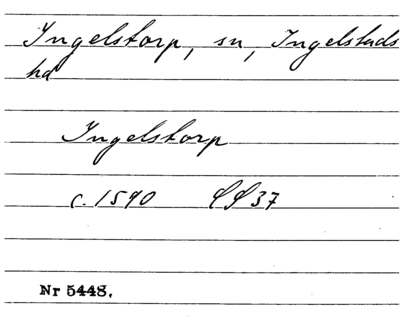 Ingelstorp, sn, Ingelstads
hd
Ingelstorp
c. 1590 SS 37
Nr 5448.